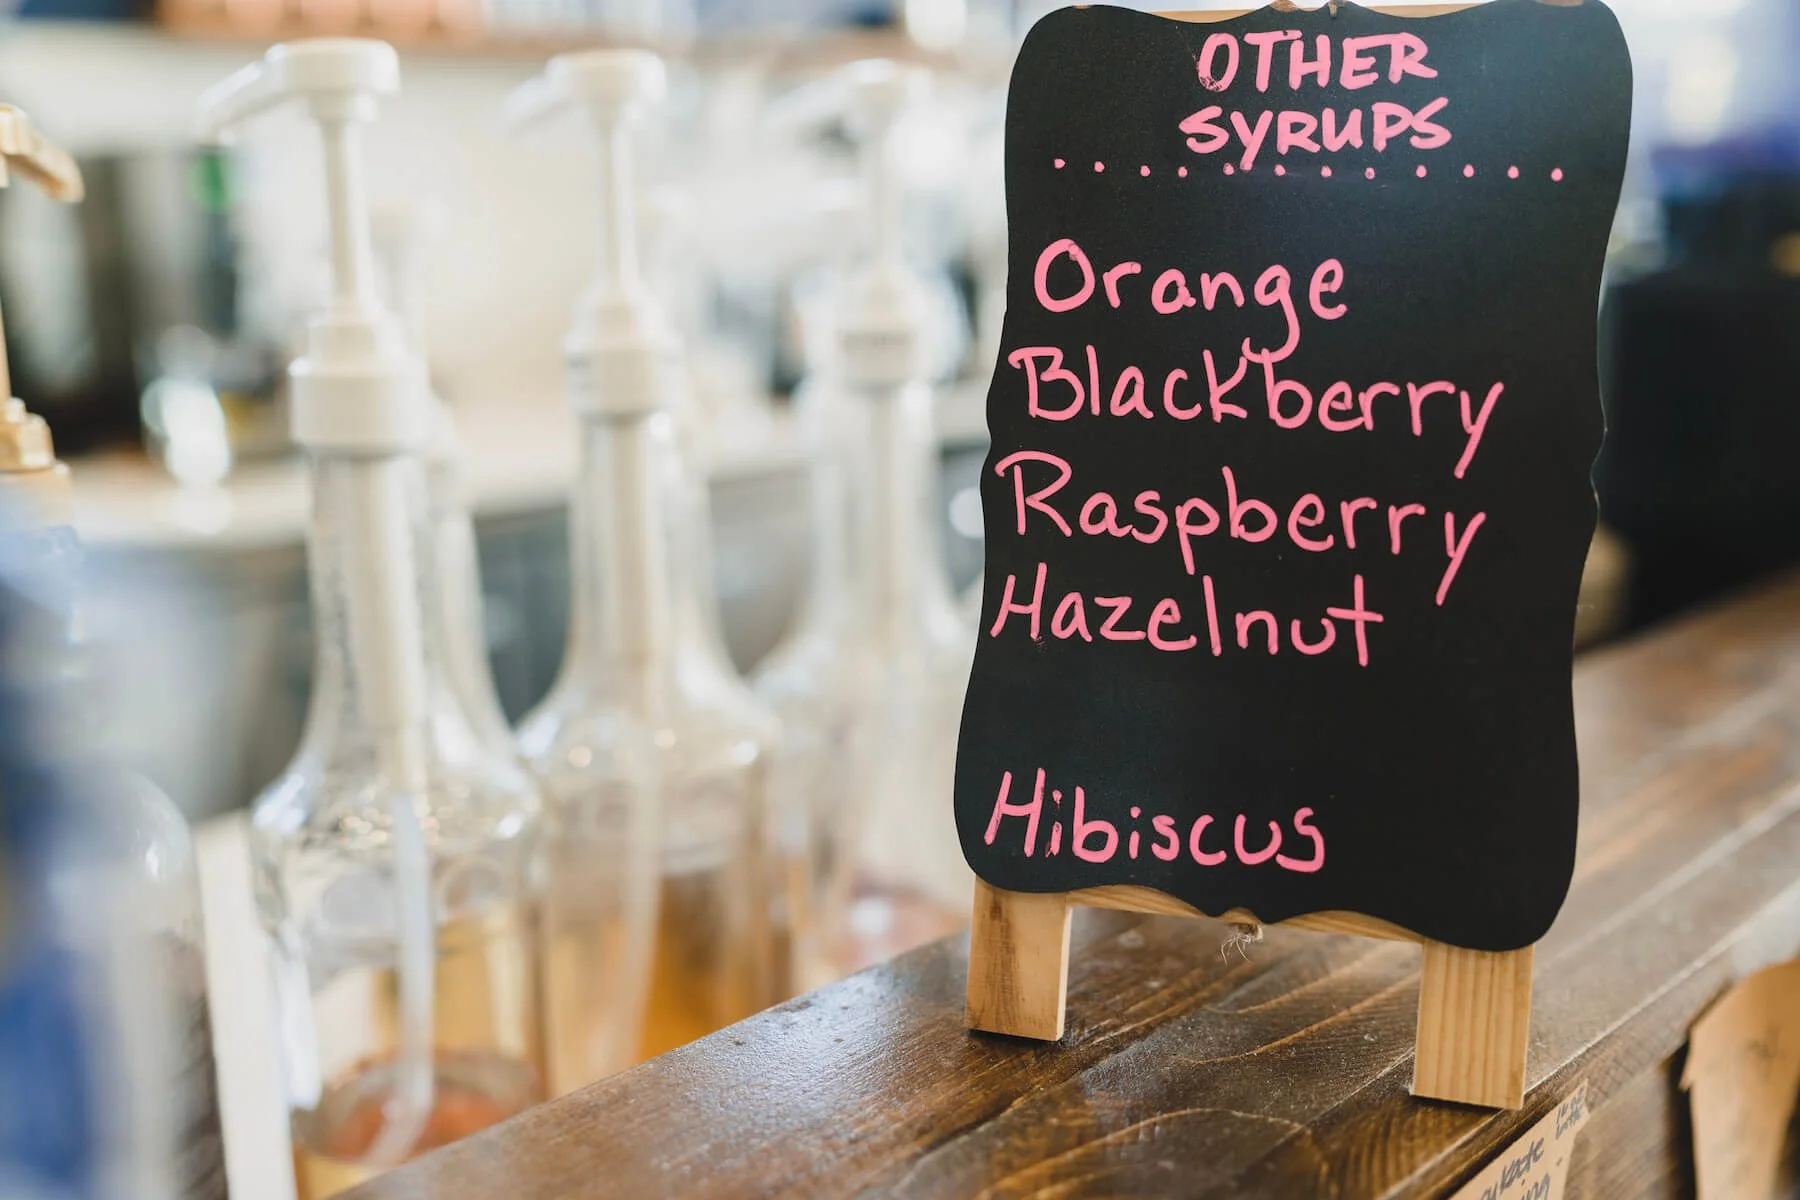 OTHER
SYRUPS
Orange
Blackberry
Raspberry
Hazelnut
Hibiscus